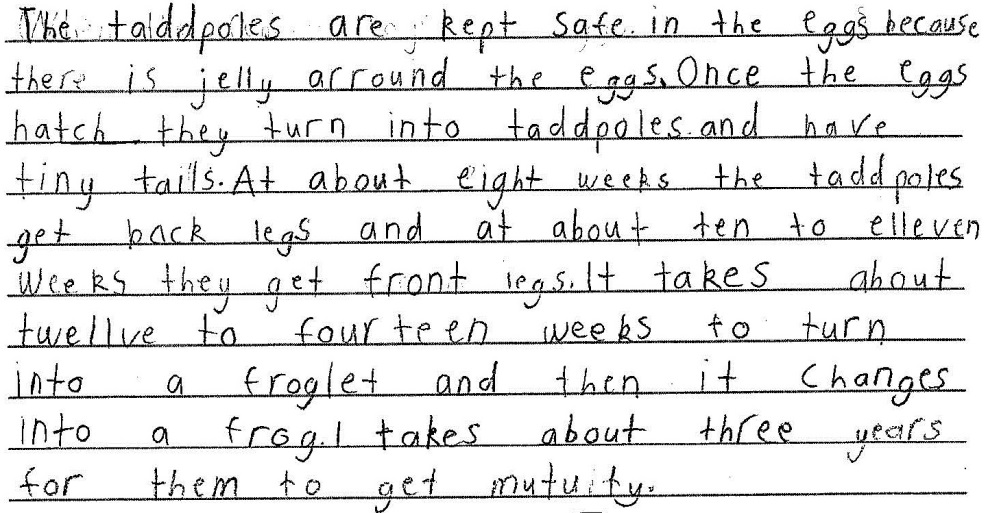 The taddpoles are kept safe in the eggs because
there is jelly arround the eggs. Once the eggs
hatch they turn into taddpoles and have
tiny tails. At about eight weeks the taddpoles
get back legs and at about ten to elleven
weeks they get front legs. It takes about
twellve to fourteen weeks to turn
into a froglet and then it changes
into a frog. I takes about three years
for them to get mutuity.